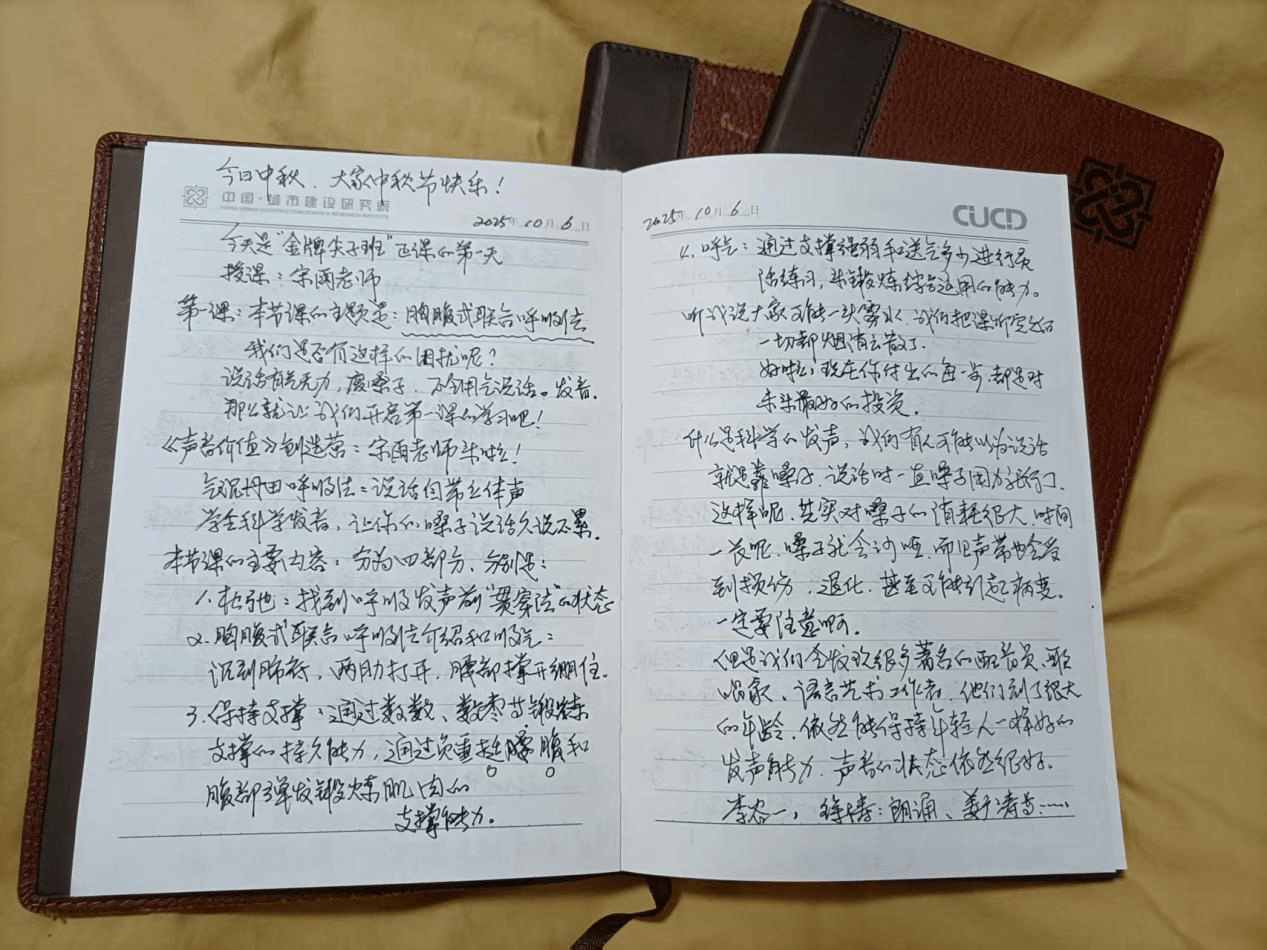 今日中秋、大家中秋节快乐！
中国·城市建设研究院
CHINA URBAN CONSTRUCTION DESIGN & RESEARCH INSTITUTE
2025年10月6日
今天是“金牌尖子班”正课的第一天
授课：宋雨老师
第一课：本节课的主题是：胸腹式联合呼吸法
我们是否有这样的困扰呢？
说话有气无力，废嗓子，不会用气说话。发音．
那么就让我们开启第一课的学习吧！
《声音价值》创造营：宋雨老师来啦！
气沉丹田呼吸法：说话自带立体声
学会科学发音，让你的嗓子说话久说不累．
本节课的主要内容：分为四部分，分别是：
1.松弛：找到呼吸发声前“贯穿法”的状态
2.胸腹式联合呼吸法介绍和吸气：
识到肺底，两肋打开，腰部撑开绷住．
3.保持支撑：通过数数、数枣等锻炼
支撑的持久能力，通过负重起腰腹和
腹部弹发锻炼肌肉的
支撑能力。
2025年10月6日
CUCD
4.呼气：通过支撑强弱和送气多少进行灵
活练习，来锻炼综合运用的能力。
听我说大家可能一头雾水，我们把课听完后
一切都烟消云散了．
好啦，现在你付出的每一步，都是对
未来最好的投资．
什么是科学的发声，我们有人可能以为说话
就是靠嗓子，说话时一直嗓子用力
这样呢，其实对嗓子的消耗很大，时间
一长呢，嗓子就会沙哑，而且声带也会受
到损伤，退化，甚至可能引起病变。
一定要注意啊．
但是我们会发现很多著名的配音员、歌
唱家、语言艺术工作者，他们到了很大
的年龄，依然能保持年轻人一样好的
发声能力，声音的状态依然很好．
李谷一，：朗诵、等……